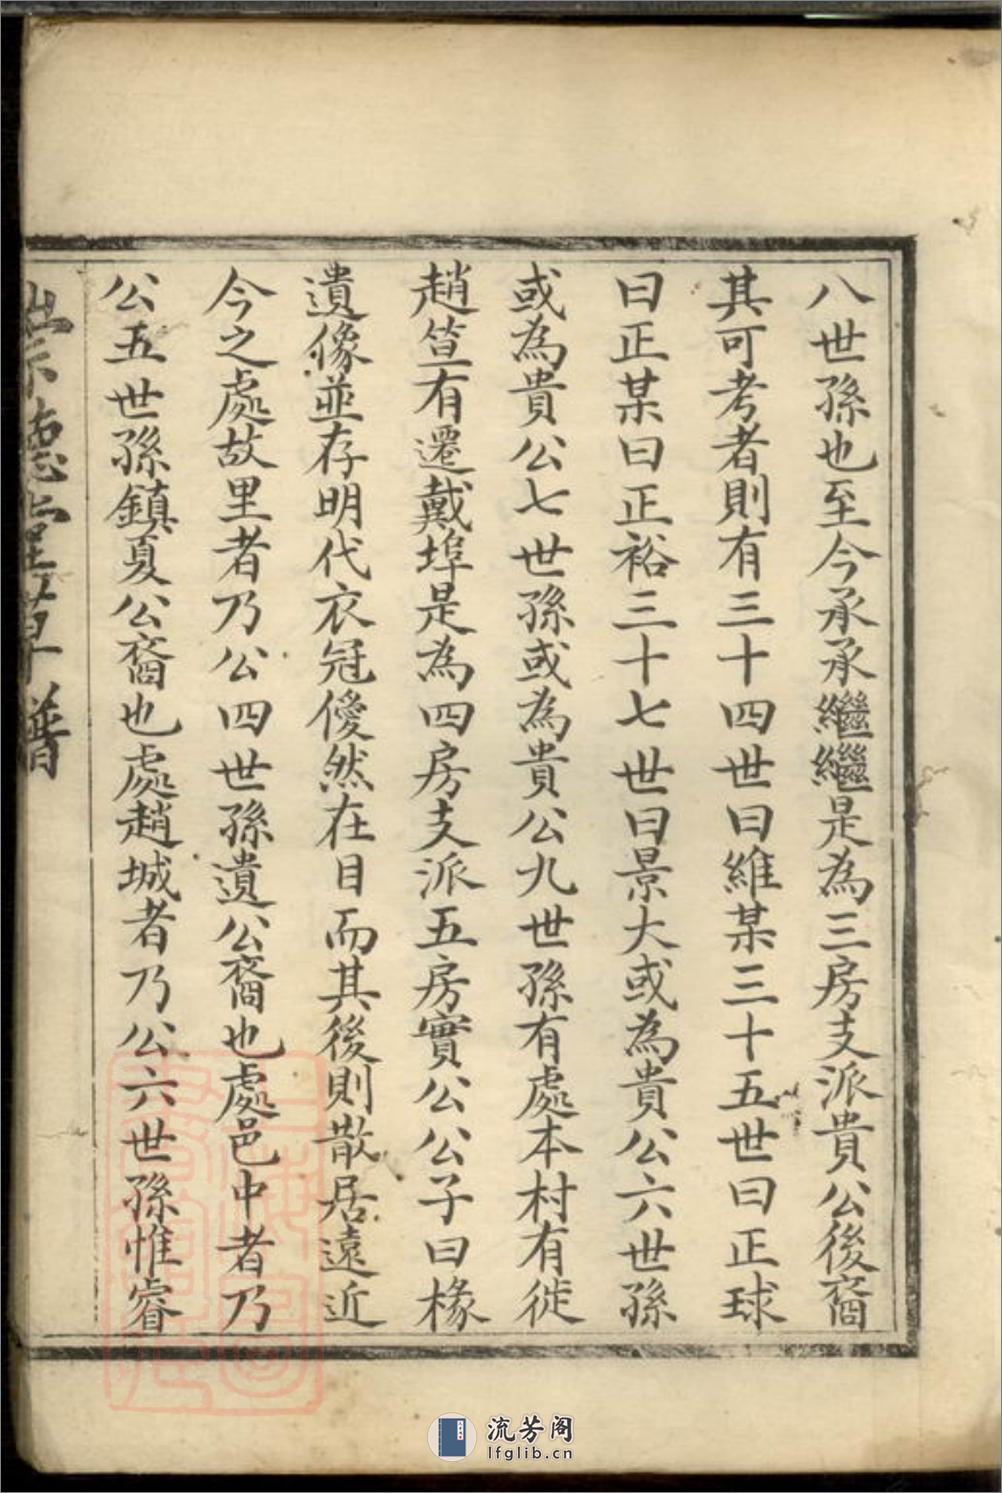 八世孫也至今承承繼繼是為三房支派貴公後裔
其可考者則有三十四世曰維某三十五世曰正球
曰正某曰正裕三十七世曰景大或為貴公六世孫
或為貴公七世孫或為貴公九世孫有處本村有徙
趙笪有遷戴埠是為四房支派五房實公公子曰椽
遺像並存明代衣冠僾然在目而其後則散居遠近
今之處故里者乃公四世孫遺公裔也處邑中者乃
公五世孫鎮夏公裔也處趙城者乃公六世孫惟睿
崇德堂草譜
流芳阁
lfglib.cn